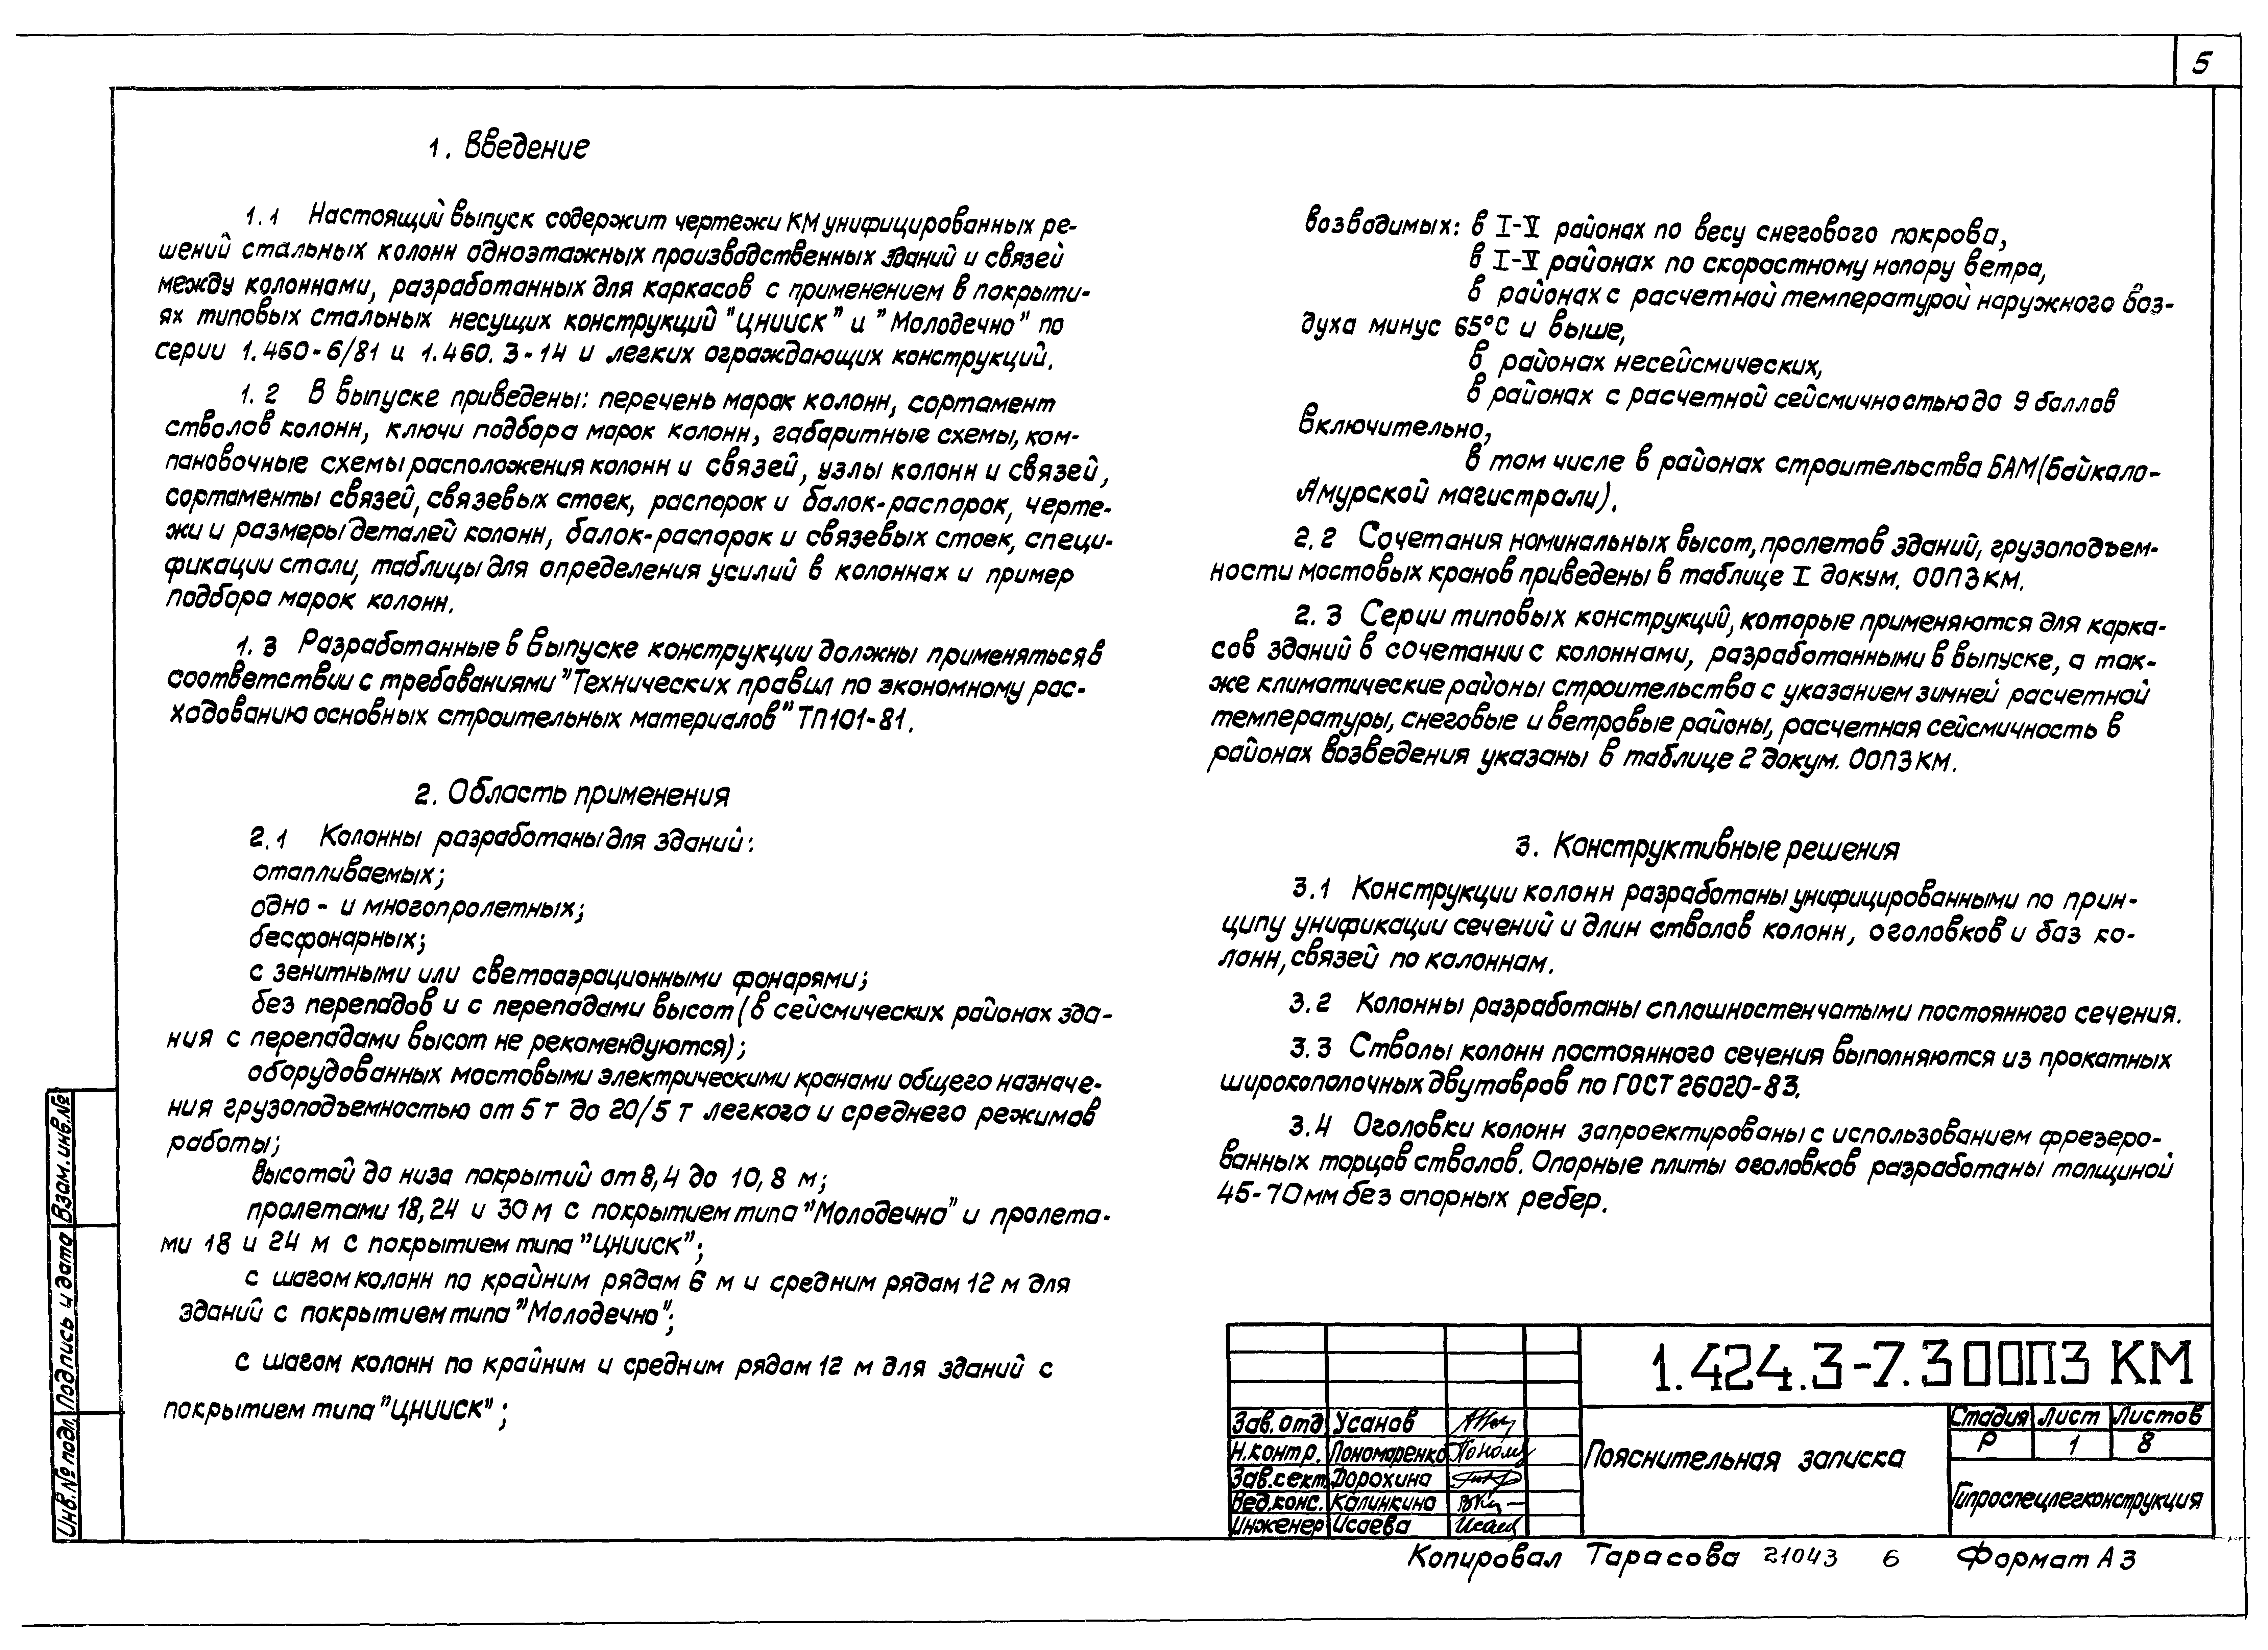 5
1. Введение
1.1 Настоящий выпуск содержит чертежи КМ унифицированных ре-
шений стальных колонн одноэтажных производственных зданий и связей
между колоннами, разработанных для каркасов с применением в покрыти-
ях типовых стальных несущих конструкций "ЦНИИСК" и "Молодечно" по
серии 1.460-6/81 и 1.460.3-14 и легких ограждающих конструкций.
1.2 В выпуске приведены: перечень марок колонн, сортамент
стволов колонн, ключи подбора марок колонн, габаритные схемы, ком-
пановочные схемы расположения колонн и связей, узлы колонн и связей,
сортаменты связей, связевых стоек, распорок и балок-распорок, черте-
жи и размеры деталей колонн, балок-распорок и связевых стоек, специ-
фикации стали, таблицы для определения усилий в колоннах и пример
подбора марок колонн.
1.3 Разработанные в выпуске конструкции должны применяться в
соответствии с требованиями "Технических правил по экономному рас-
ходованию основных строительных материалов" ТП101-81.
2. Область применения
2.1 Колонны разработаны для зданий:
отапливаемых;
одно- и многопролетных;
бесфонарных;
с зенитными или светоаэрационными фонарями;
без перепадов и с перепадами высот (в сейсмических районах зда-
ния с перепадами высот не рекомендуются);
оборудованных мостовыми электрическими кранами общего назначе-
ния грузоподъемностью от 5 т до 20/5 т легкого и среднего режимов
работы;
высотой до низа покрытий от 8,4 до 10,8 м;
пролетами 18, 24 и 30 м с покрытием типа "Молодечно" и пролета-
ми 18 и 24 м с покрытием типа "ЦНИИСК";
с шагом колонн по крайним рядам 6 м и средним рядам 12 м для
зданий с покрытием типа "Молодечно";
с шагом колонн по крайним и средним рядам 12 м для зданий с
покрытием типа "ЦНИИСК";
возводимых: в I-V районах по весу снегового покрова,
в I-V районах по скорастному напору ветра,
в районах с расчетной температурой наружного воз-
духа минус 65°С и выше,
в районах несейсмических,
в районах с расчетной сейсмичностью до 9 баллов
включительно,
в том числе в районах строительства БАМ (Байкало-
Амурской магистрали).
2.2 Сочетания номинальных высот, пролетов зданий, грузоподъем-
ности мостовых кранов приведены в таблице I докум. 00ПЗ КМ.
2.3 Серии типовых конструкций, которые применяются для карка-
сов зданий в сочетании с колоннами, разработанными в выпуске, а так-
же климатические районы строительства с указанием зимней расчетной
температуры, снеговые и ветровые районы, расчетная сейсмичность в
районах возведения указаны в таблице 2 докум. 00ПЗ КМ.
3. Конструктивные решения
3.1 Конструкции колонн разработаны унифицированными по прин-
ципу унификации сечений и длин стволов колонн, оголовков и баз ко-
лонн, связей по колоннам.
3.2 Колонны разработаны сплашностенчатыми постоянного сечения.
3.3 Стволы колонн постоянного сечения выполняются из прокатных
широкополочных двутавров по ГОСТ 26020-83.
3.4 Оголовки колонн запроектированы с использованием фрезеро-
ванных торцов стволов. Опорные плиты оголовков разработаны толщиной
45-70 мм без опорных ребер.
1.424.3-7.3 00ПЗ КМ
Зав. отд Усанов
Н.контр. Пономаренко
Зав.сект. Дорохина
Вед.конс. Калинкина
Инженер Исаева
Пояснительная записка
Стадия Лист Листов
Р 1 8
Гипроспецлегконструкция
Инв.№ подл. Подпись и дата Взам.инв.№
Копировал Тарасова 21043 6 Формат А3